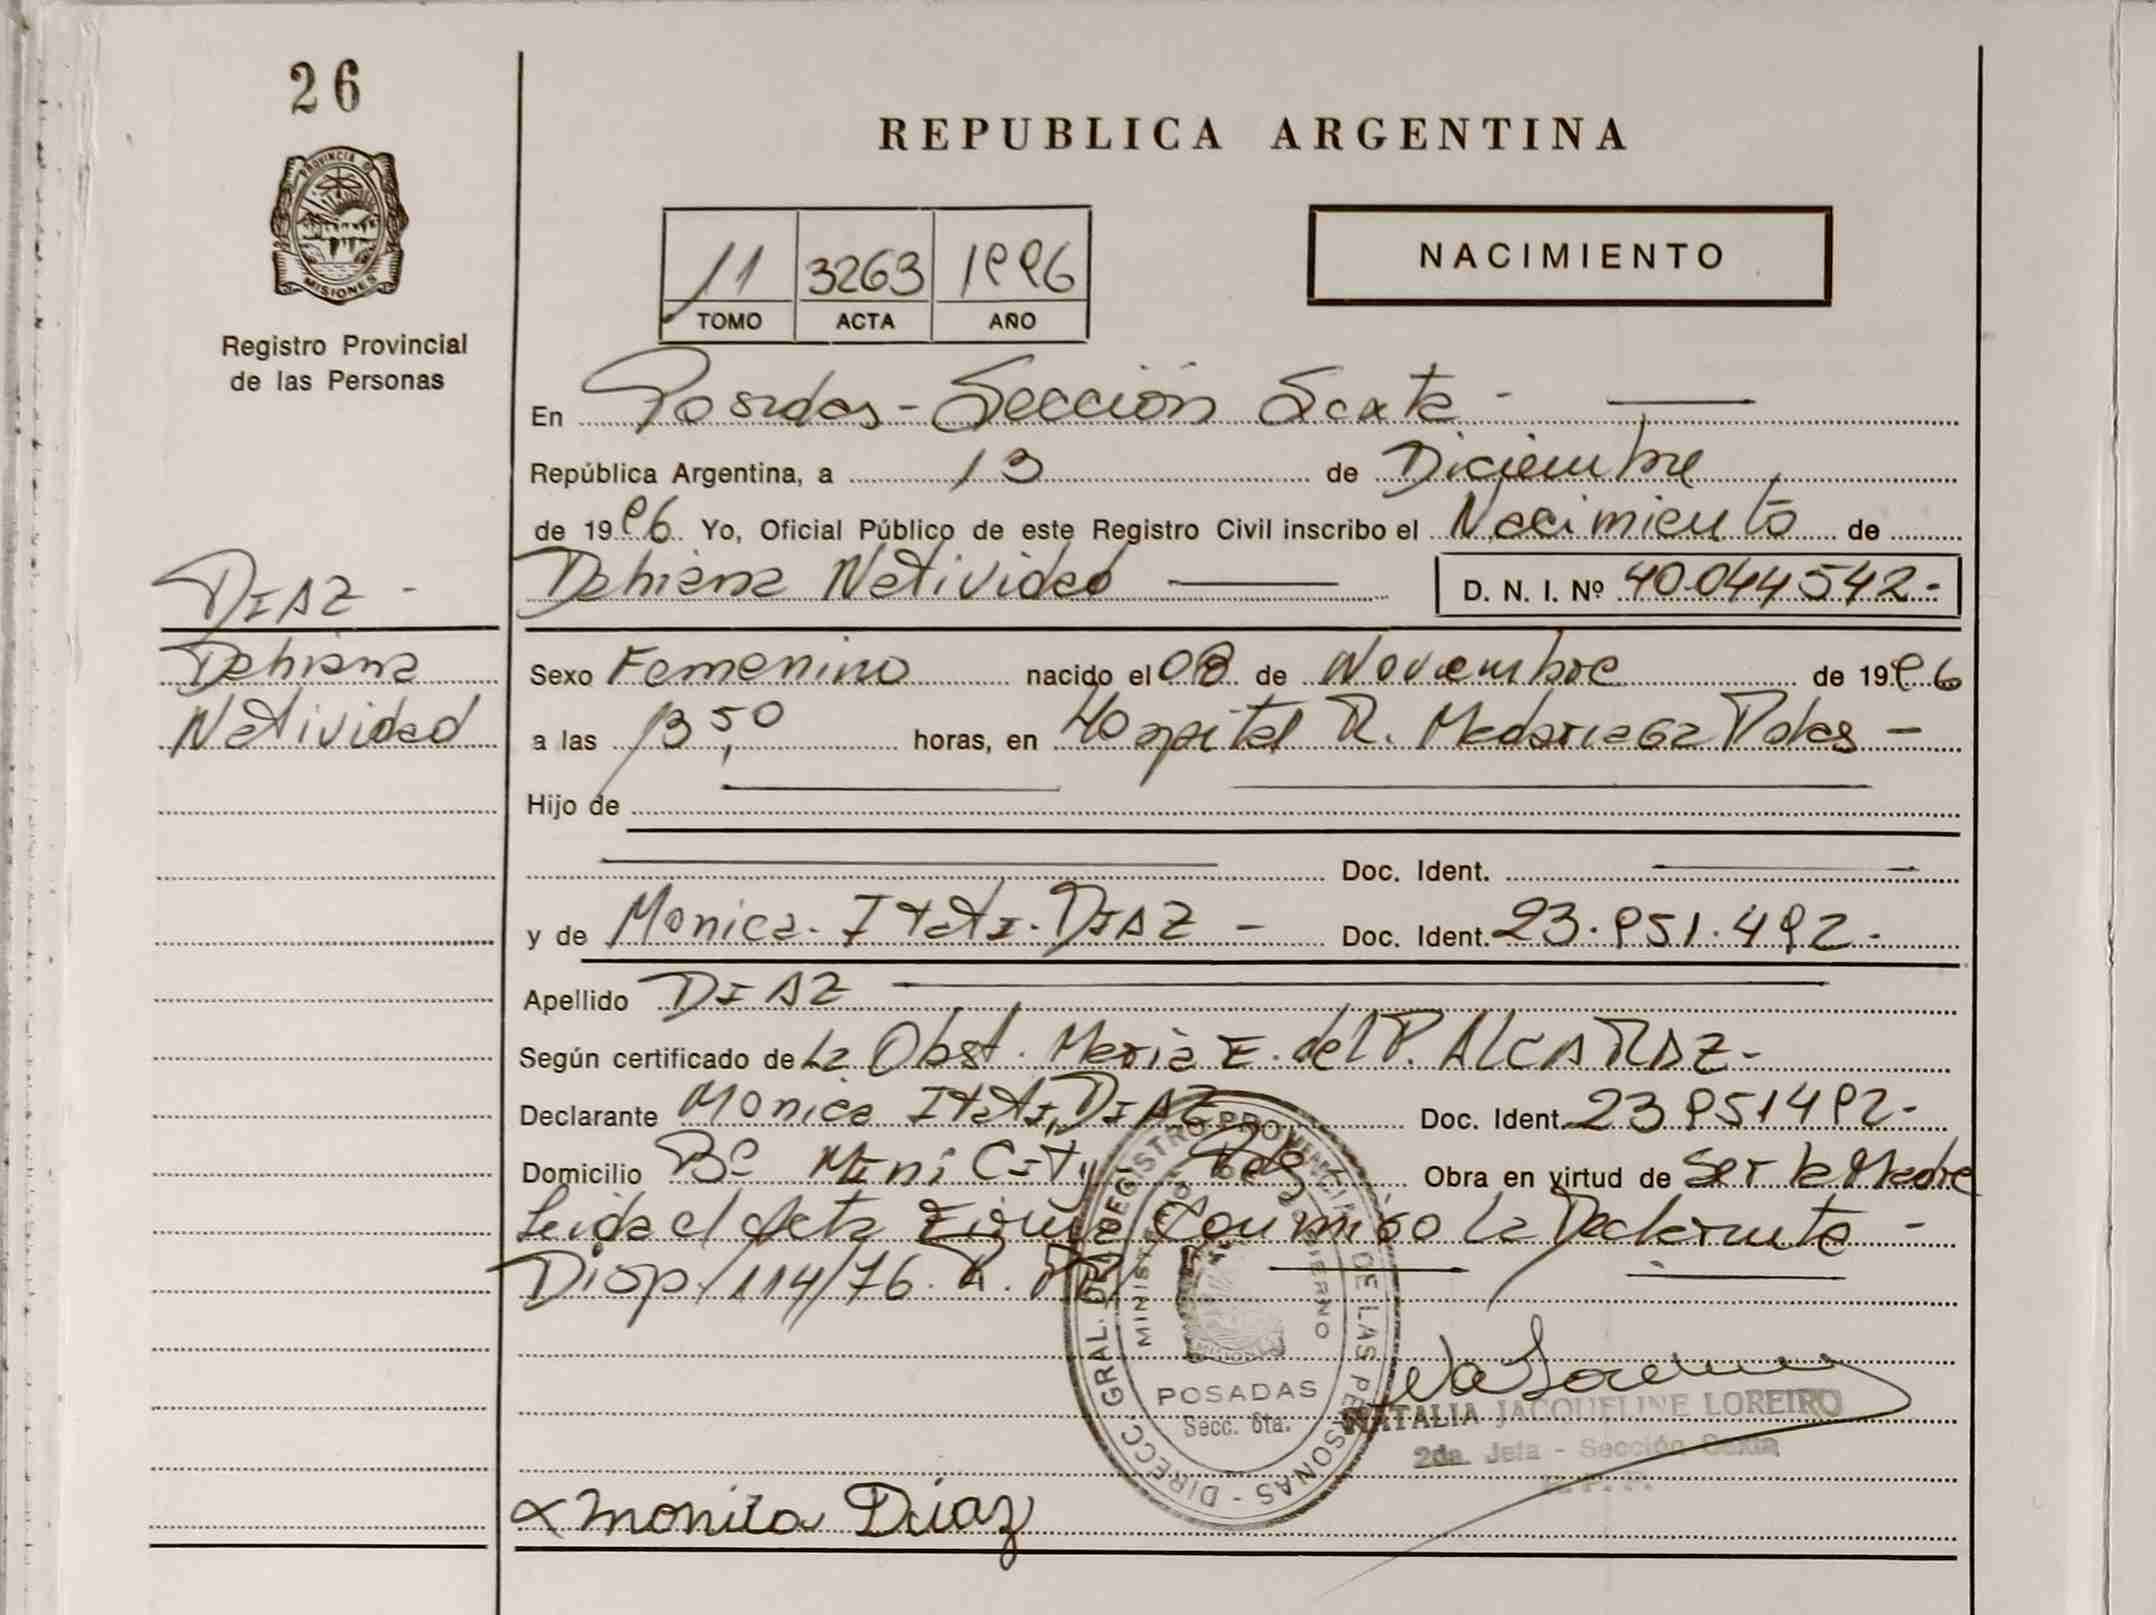 26
PROVINCIA DE
MISIONES
Registro Provincial
de las Personas
REPUBLICA ARGENTINA
11 3263 1996
TOMO ACTA AÑO
NACIMIENTO
En Posadas - Sección Sexta -
República Argentina, a 13 de Diciembre
de 1996 Yo, Oficial Público de este Registro Civil inscribo el Nacimiento de
Dahiana Natividad D. N. I. Nº 40.044542.-
DIAZ -
Dahiana
Natividad
Sexo Femenino nacido el 08 de Noviembre de 1996
a las 13,50 horas, en Hospital R. Madariaga Pdas -
Hijo de
Doc. Ident.
y de Monica. Itati. DIAZ - Doc. Ident. 23.951.492.-
Apellido DIAZ
Según certificado de La Obst. Maria E. del P. ALCARAZ-
Declarante Monica Itati, DIAZ Doc. Ident. 23951492-
Domicilio Bº Mini City Pdas Obra en virtud de Ser la Madre
Leida el Acta Firma Conmigo La Declarante -
Disp/114/76. R.
DIRECC. GRAL. REGISTRO PROVINCIAL DE LAS PERSONAS -
MINISTERIO DE GOBIERNO
POSADAS
Secc. 6ta.
NATALIA JACQUELINE LOREIRO
2da. Jefa - Sección Sexta
x Monica Diaz